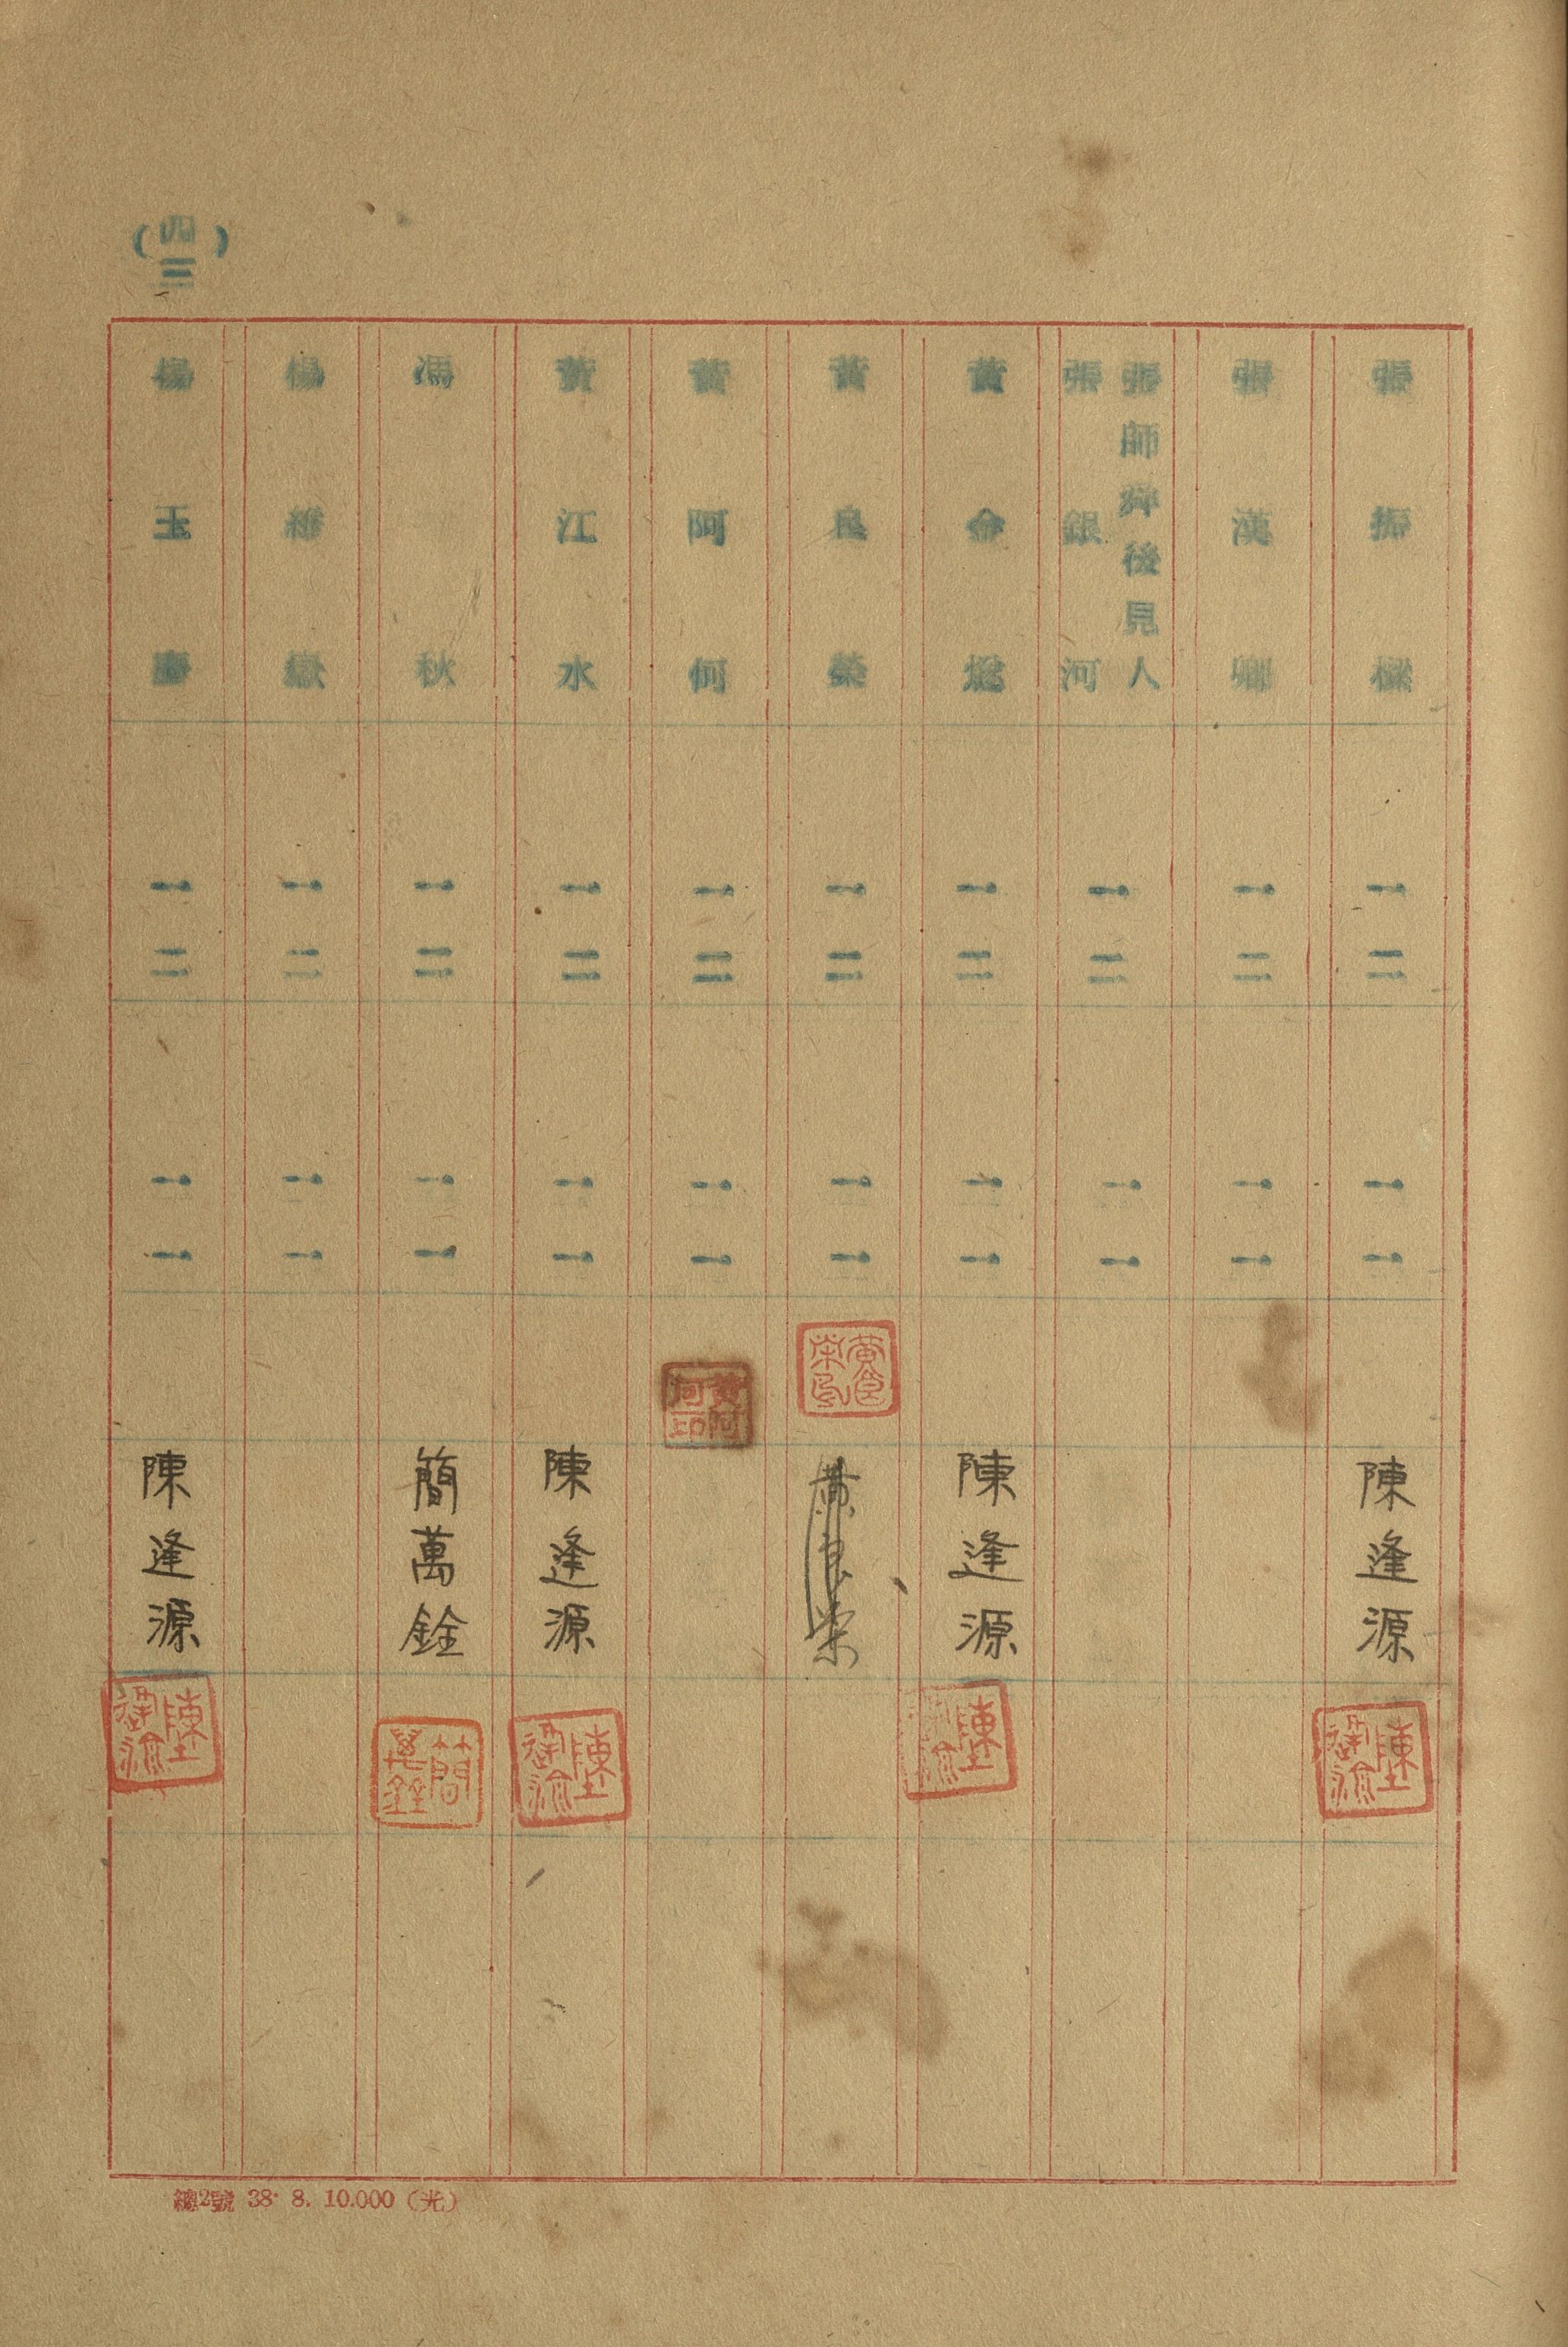 (四三)
張振樑
一二
一一
陳逢源
張漢卿
一二
一一
張師舜後見人
張銀河
一二
一一
黃金
一二
一一
陳逢源
黃良榮
一二
一一
黃良榮
黃阿何
一二
一一
黃阿何印
黃江水
一二
一一
陳逢源
馮秋
一二
一一
簡萬銓
簡萬銓
楊維嶽
一二
一一
楊玉
一二
一一
陳逢源
總2號 38. 8. 10.000(光)